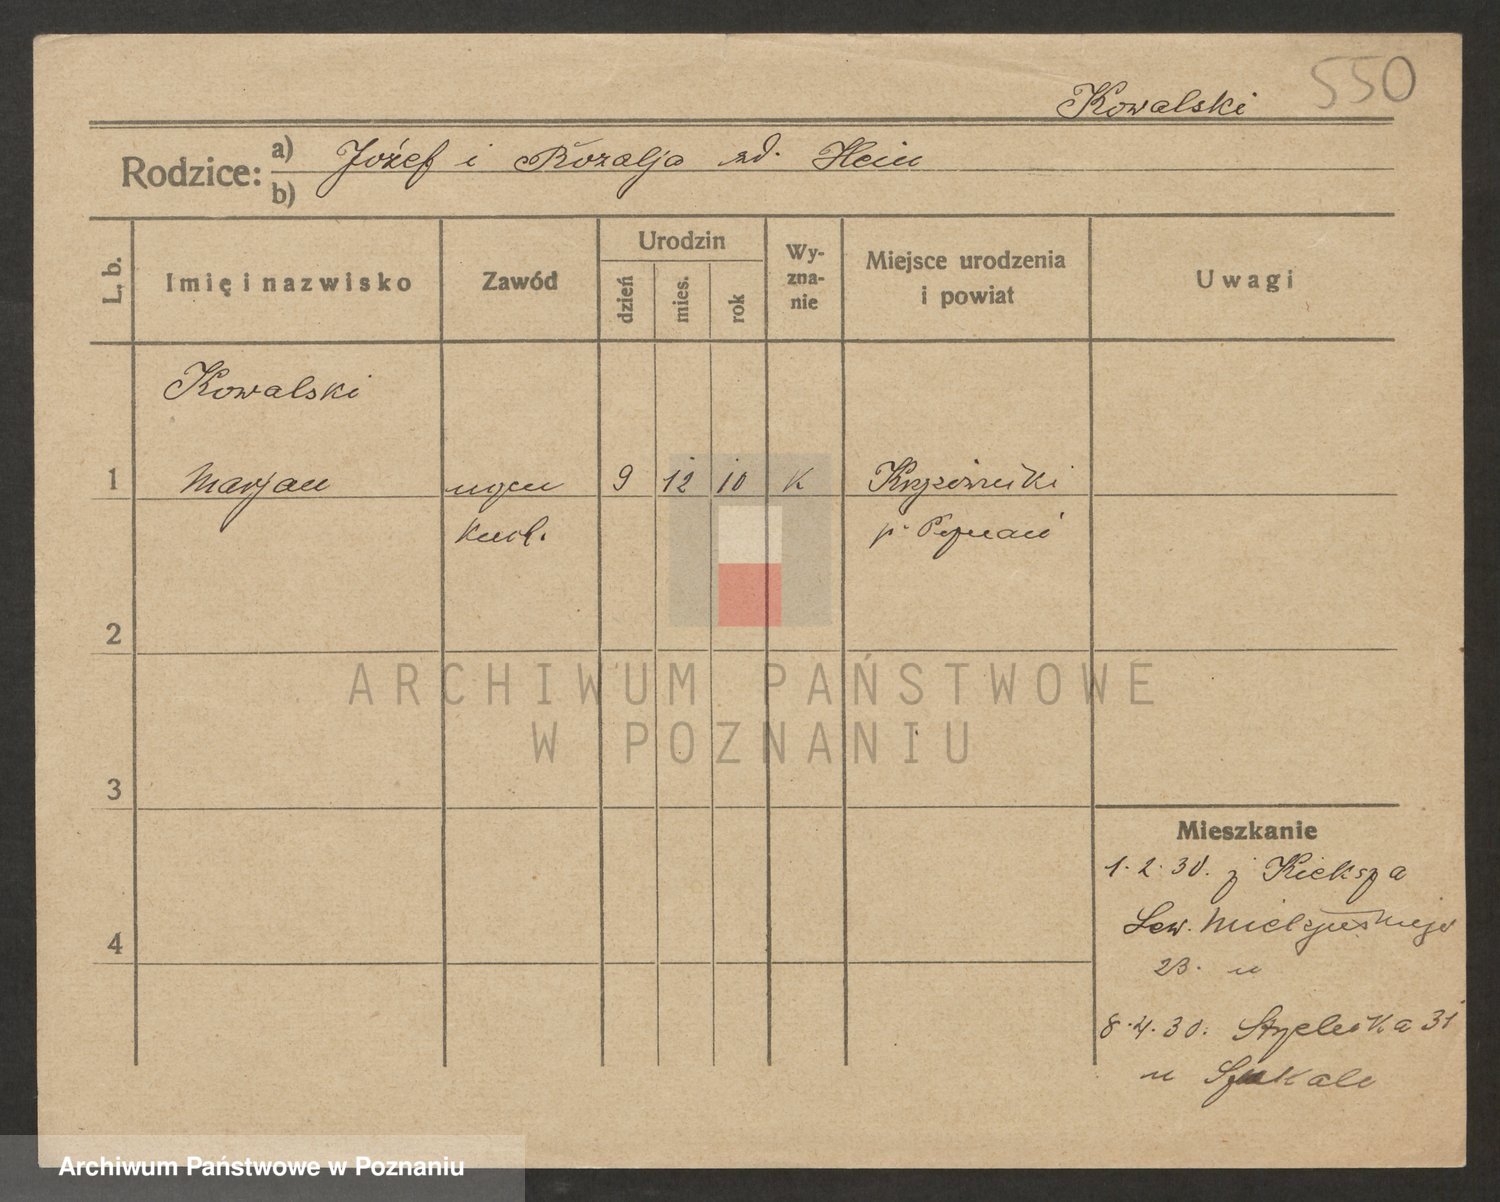 550
Kowalski
Rodzice:
a) Józef i Rozalja zd. Hein
b)
L. b.
Imię i nazwisko
Zawód
Urodzin
dzień
mies.
rok
Wy-
zna-
nie
Miejsce urodzenia
i powiat
Uwagi
Kowalski
1 Marjan uczeń 9 12 10 K Krzyżowniki
p. Poznań
2
3
4
ARCHIWUM PAŃSTWOWE
W POZNANIU
Mieszkanie
1.2.30. z Kiekrza
Sew. Mielżyńskiego
23. u
8.4.30. Strzelecka 31
u
Archiwum Państwowe w Poznaniu